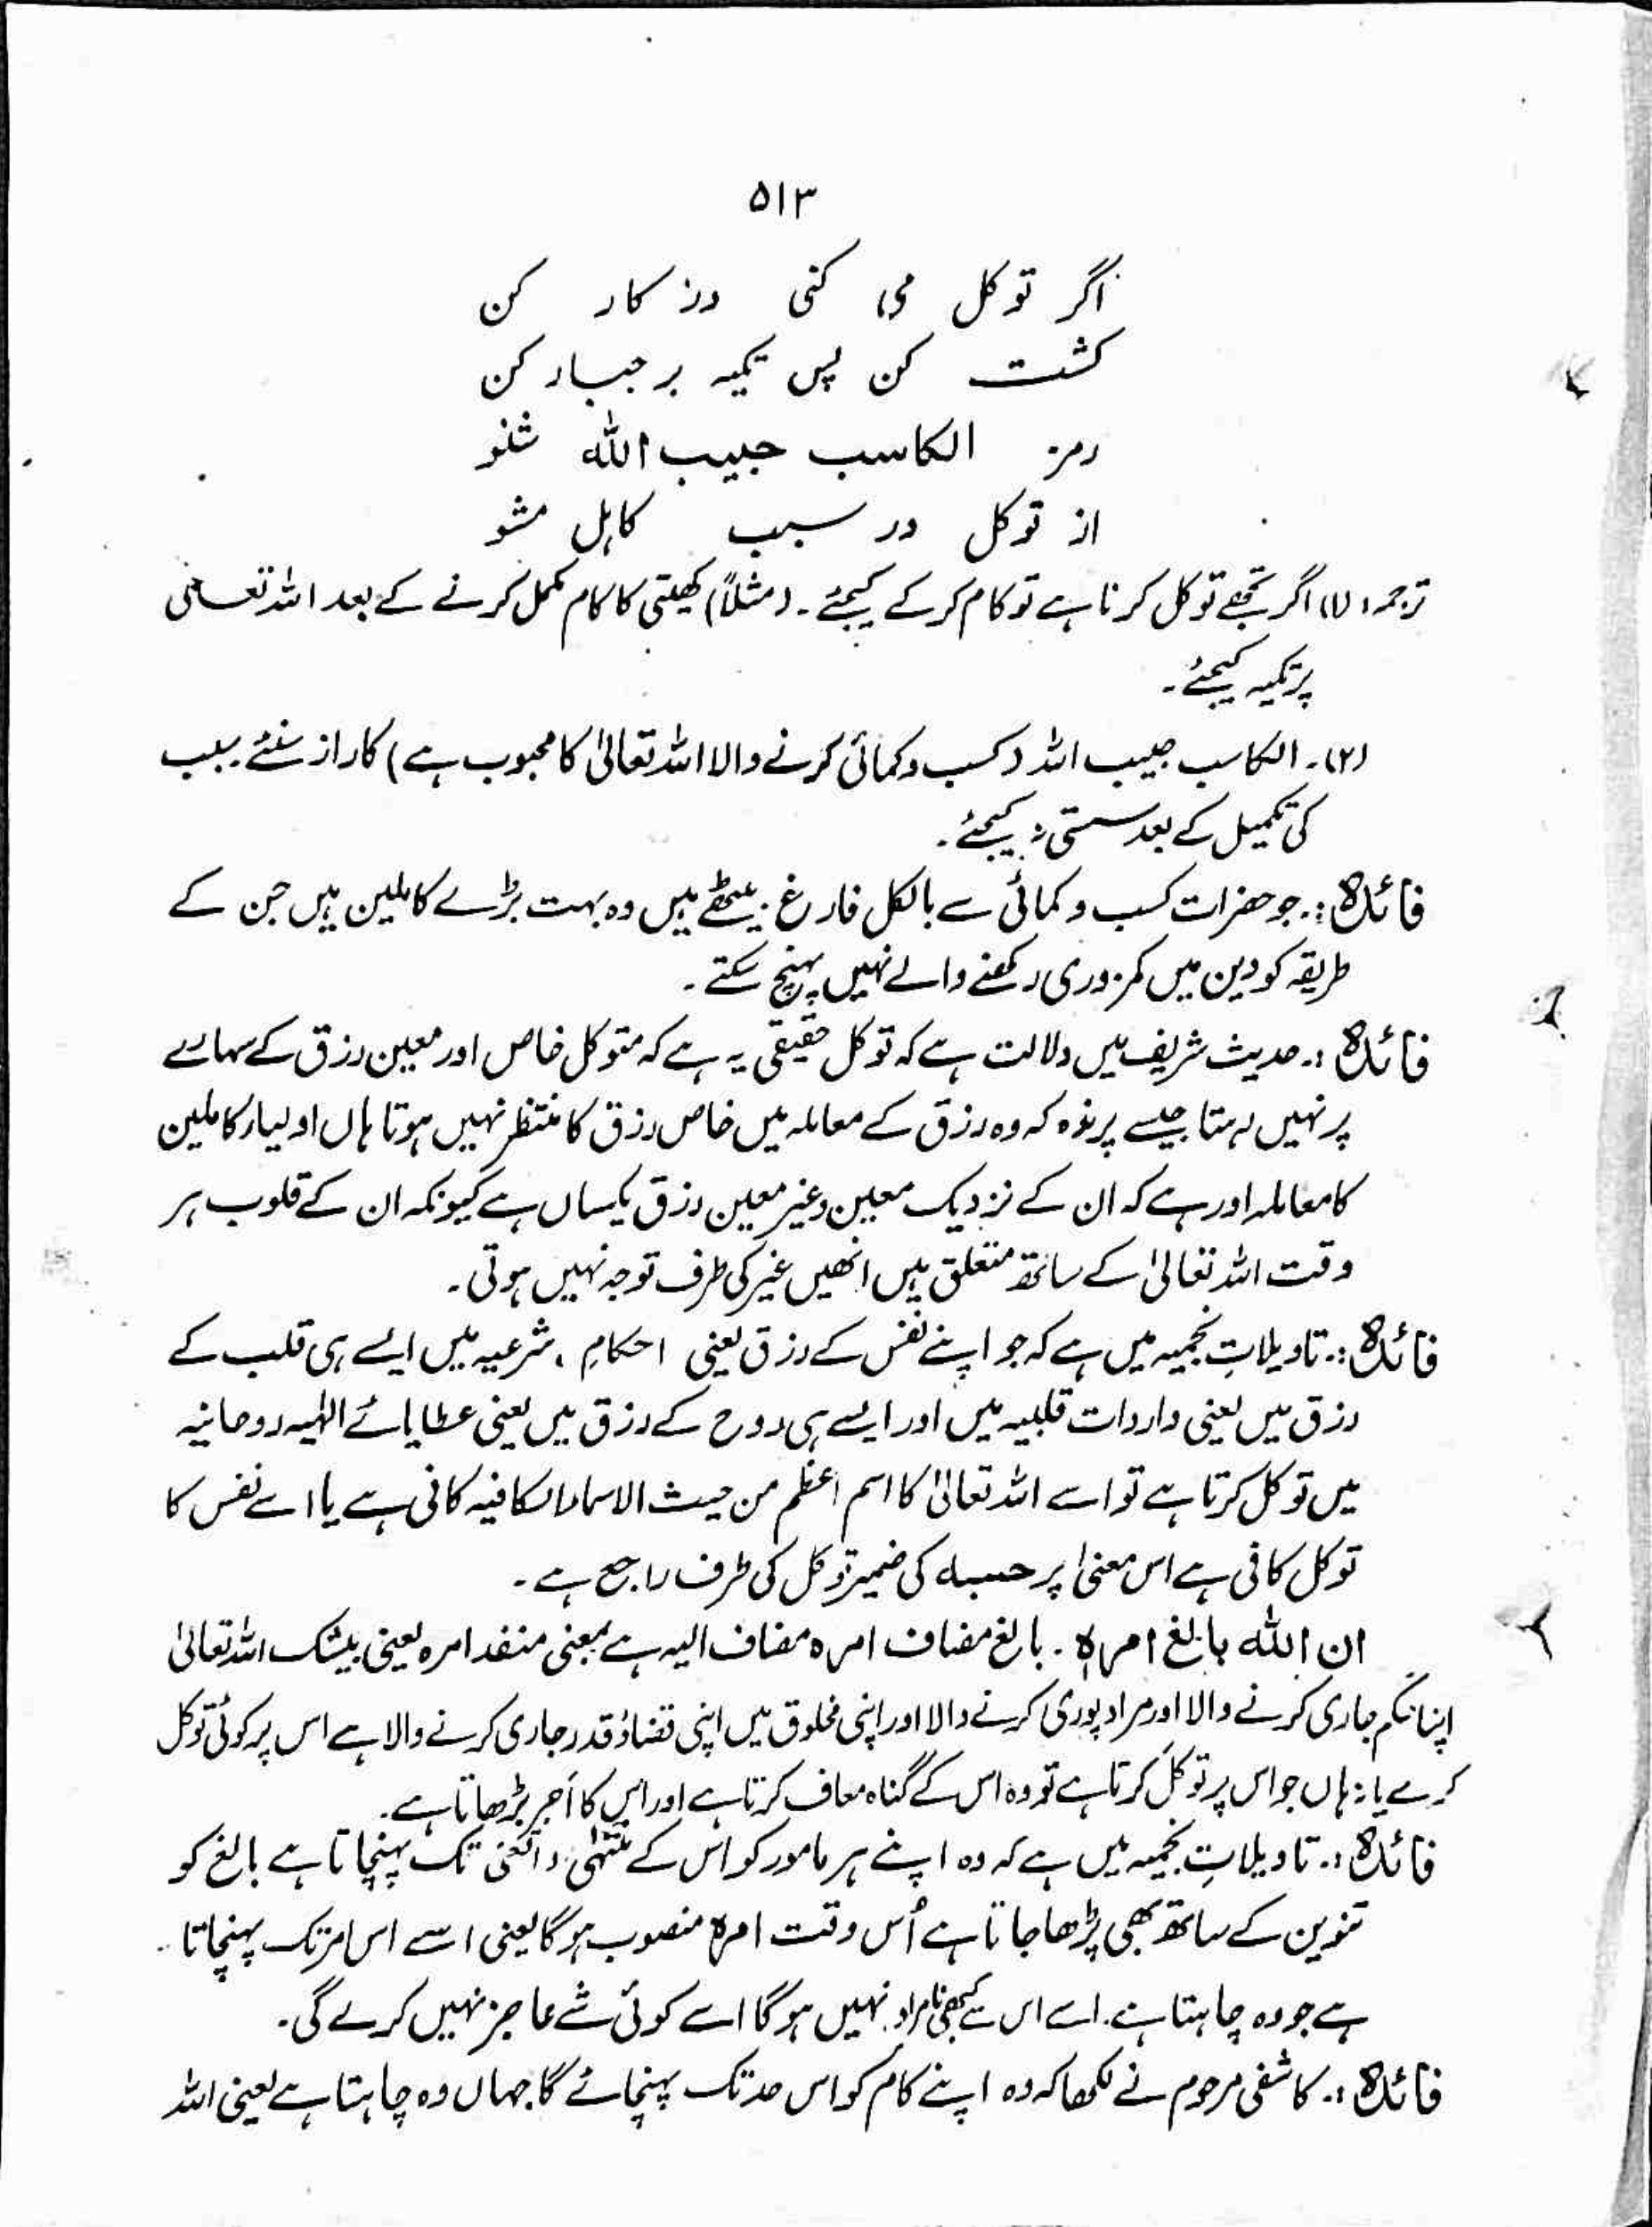 ۵۱۳
اگر توکل می کنی درکار کن
کشت کن پس تکیہ بر جبار کن
رمز الکاسب حبیب اللہ شنو
از توکل در سبب کاہل مشو
ترجمہ: (۱) اگر تجھے توکل کرنا ہے تو کام کرکے کیجئے۔ (مثلاً) کھیتی کا کام مکمل کرنے کے بعد اللہ تعالٰی
پر تکیہ کیجئے۔
(۲)۔ الکاسب حبیب اللہ (کسب و کمائی کرنے والا اللہ تعالٰی کا محبوب ہے) کا راز سنئے سبب
کی تکمیل کے بعد سستی نہ کیجئے۔
فائدہ:۔ جو حضرات کسب و کمائی سے بالکل فارغ بیٹھے ہیں وہ بہت بڑے کاملین ہیں جن کے
طریقہ کو دین میں کمزوری رکھنے والے نہیں پہنچ سکتے۔
فائدہ:۔ حدیث شریف میں دلالت ہے کہ توکل حقیقی یہ ہے کہ متوکل خاص اور معین رزق کے سہارے
پر نہیں رہتا جیسے پرندہ کہ وہ رزق کے معاملہ میں خاص رزق کا منتظر نہیں ہوتا ہاں اولیاء کاملین
کا معاملہ اور ہے کہ ان کے نزدیک معین و غیر معین رزق یکساں ہے کیونکہ ان کے قلوب ہر
وقت اللہ تعالٰی کے ساتھ متعلق ہیں انھیں غیر کی طرف توجہ نہیں ہوتی۔
فائدہ:۔ تاویلاتِ نجمیہ میں ہے کہ جو اپنے نفس کے رزق یعنی احکامِ شرعیہ میں ایسے ہی قلب کے
رزق میں یعنی واردات قلبیہ میں اور ایسے ہی روح کے رزق میں یعنی عطایائے الٰہیہ روحانیہ
میں توکل کرتا ہے تو اسے اللہ تعالٰی کا اسم اعظم من حیث الاسماء الکافیہ کافی ہے یا اسے نفس کا
توکل کافی ہے اس معنٰی پر حسبہ کی ضمیر توکل کی طرف راجع ہے۔
ان اللہ بالغ امرہ۔ بالغ مضاف امرہ مضاف الیہ ہے بمعنی منفذ امرہ یعنی بیشک اللہ تعالٰی
اپنا حکم جاری کرنے والا اور مراد پوری کرنے والا اور اپنی مخلوق میں اپنی قضاء و قدر جاری کرنے والا ہے اس پر کوئی توکل
کرے یا نہ ہاں جو اس پر توکل کرتا ہے تو وہ اس کے گناہ معاف کرتا ہے اور اس کا اجر بڑھاتا ہے۔
فائدہ:۔ تاویلاتِ نجمیہ میں ہے کہ وہ اپنے ہر مامور کو اس کے منتہٰی و تک پہنچاتا ہے بالغ کو
تنوین کے ساتھ بھی پڑھا جاتا ہے اُس وقت امرہ منصوب ہوگا یعنی اسے اس امر تک پہنچاتا
ہے جو وہ چاہتا ہے۔ اسے اس سے کبھی نامراد نہیں ہوگا اسے کوئی شے عاجز نہیں کرے گی۔
فائدہ:۔ کاشفی مرحوم نے لکھا کہ وہ اپنے کام کو اس حد تک پہنچائے گا جہاں وہ چاہتا ہے یعنی اللہ